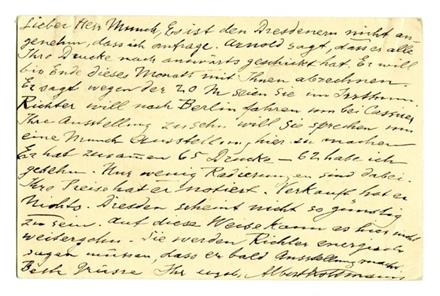 Lieber Herr Munch, Es ist den Dresdenern nicht an-
genehm, dass ich anfrage. Arnold sagt, dass er alle
Ihre Drucke nach auswärts geschickt hat. Er will
bis Ende dieses Monats mit Ihnen abrechnen.
Er sagt wegen der 20 M seien Sie im Irrthum.
Richter will nach Berlin fahren um bei Cassirer
Ihre Ausstellung zu sehn will Sie sprechen um
eine Munch Ausstellung hier zu machen
Er hat zusammen 65 Drucke – 62 habe ich
gesehn. Nur wenig Radierungen sind dabei.
Ihre Preise hat er notiert. Verkauft hat er
Nichts. Dresden scheint nicht so günstig
zu sein. Auf diese Weise kann es hier nicht
weitergehn. Sie werden Richter energisch
sagen müssen, dass er bald Ausstellung macht.
Beste Grüsse Ihr Albert Kollmann